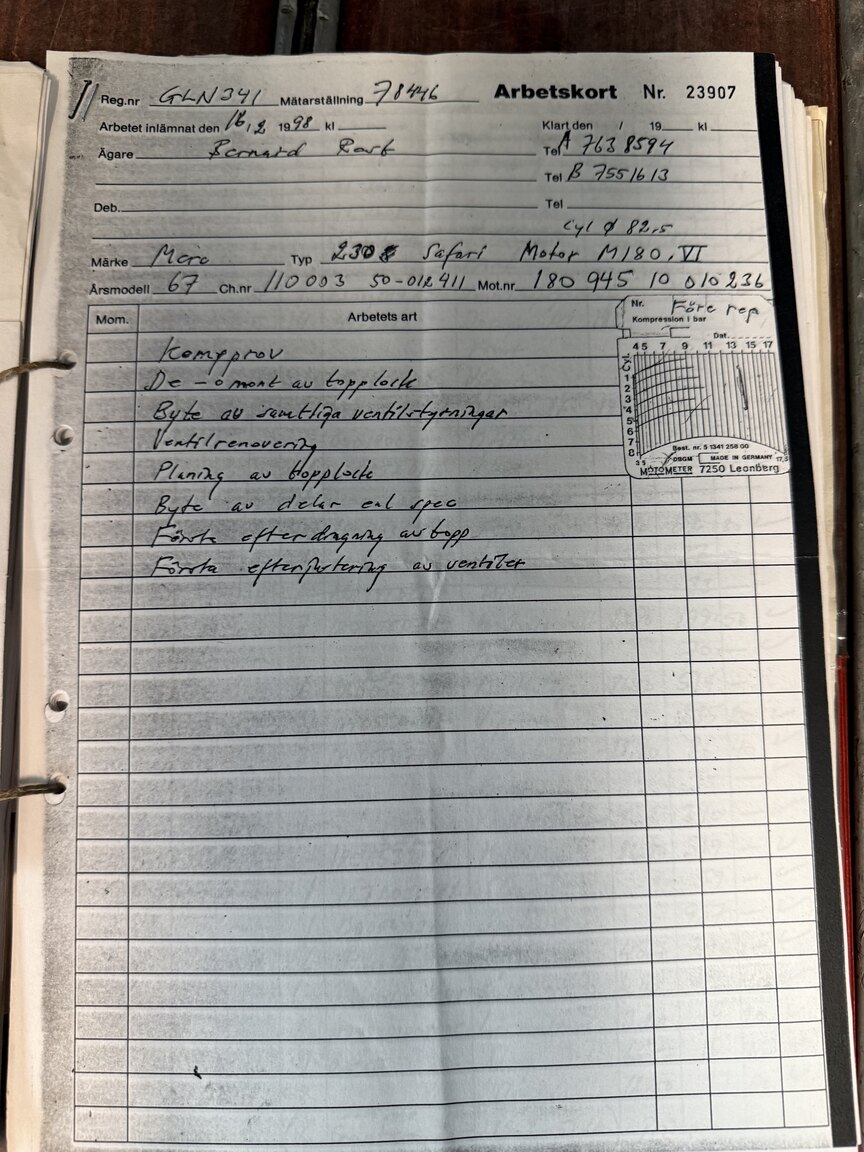 Reg.nr GLN341 Mätarställning 78446 Arbetskort Nr. 23907
Arbetet inlämnat den 16/2 1998 kl Klart den / 19 kl
Ägare Bernard Tel A 763 8594
Tel B 7551613
Deb. Tel
Cyl ø 82,5
Märke Merc Typ 230 Safari Motor M180.VI
Årsmodell 67 Ch.nr 110003 50-012411 Mot.nr 180 945 10 010236
Mom. Arbetets art
Nr. Före rep
Kompression i bar
Dat.
4 5 7 9 11 13 15 17
Cyl.
1
2
3
4
5
6
7
8
Best. nr. 5 1341 258 00
DBGM MADE IN GERMANY
3 5 17,5
MOTOMETER 7250 Leonberg
Kompprov
De - o mont av topplock
Byte av samtliga ventilstyrningar
Ventilrenovering
Planing av topplock
Byte av delar enl spec
Första efterdragning av topp
Första efterjustering av ventiler